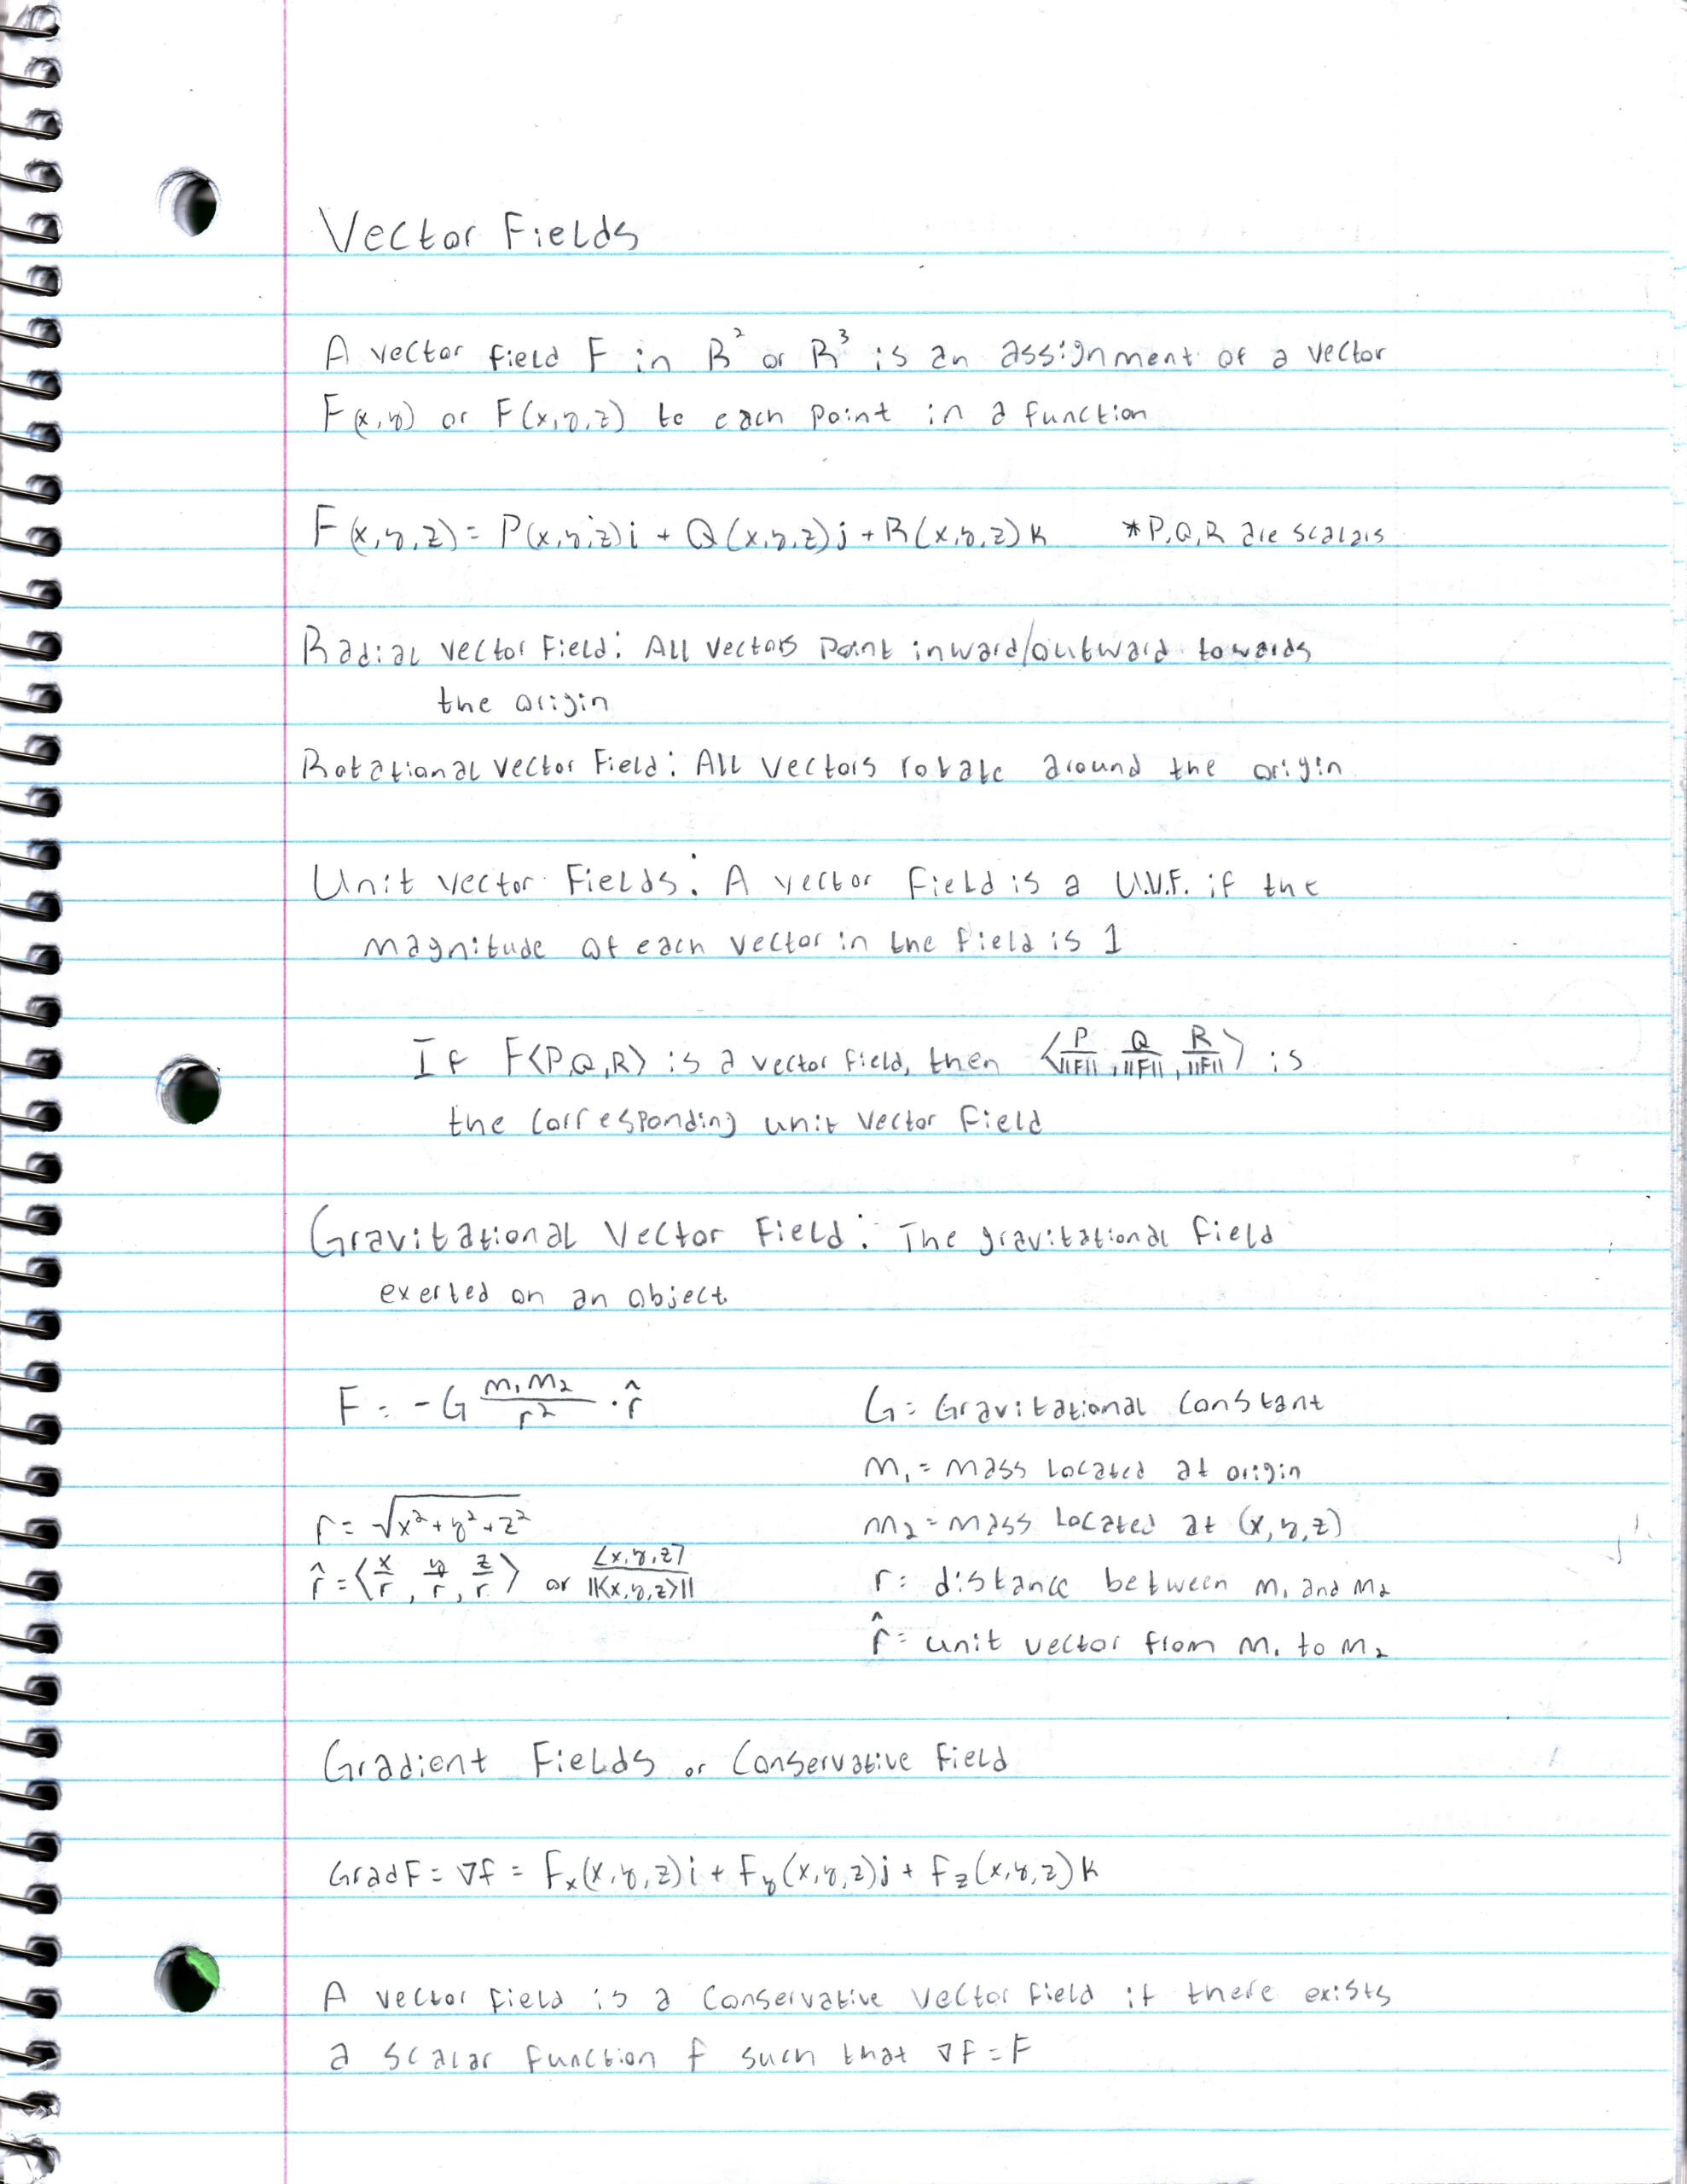 Vector Fields
A vector field F in R² or R³ is an assignment of a vector
F(x,y) or F(x,y,z) to each point in a function
F(x,y,z) = P(x,y,z)i + Q(x,y,z)j + R(x,y,z)k *P,Q,R are scalars
Radial vector Field: All vectors point inward/outward towards
the origin
Rotational vector Field: All vectors rotate around the origin
Unit vector Fields: A vector field is a U.V.F. if the
magnitude of each vector in the field is 1
If F<P,Q,R> is a vector field, then <P/||F||, Q/||F||, R/||F||> is
the corresponding unit vector field
Gravitational Vector Field: The gravitational field
exerted on an object
F = -G m₁m₂/r² · r̂ G = Gravitational constant
m₁ = mass located at origin
r = √x²+y²+z² m₂ = mass located at (x,y,z)
r̂ = <x/r, y/r, z/r> or <x,y,z>/||<x,y,z>|| r = distance between m₁ and m₂
r̂ = unit vector from m₁ to m₂
Gradient Fields or Conservative Field
Grad F = ∇f = Fx(x,y,z)i + Fy(x,y,z)j + Fz(x,y,z)k
A vector field is a conservative vector field if there exists
a scalar function f such that ∇F = F